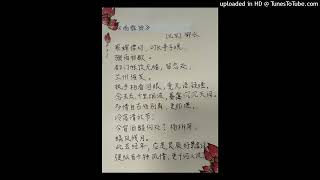 uploaded in HD @ TunesToTube.com
《雨霖铃》
(北宋) 柳永
寒蝉凄切,对长亭晚,
骤雨初歇。
都门帐饮无绪,留恋处,
兰舟催发。
执手相看泪眼,竟无语凝噎。
念去去,千里烟波,暮霭沉沉
多情自古伤离别,更那堪,
冷落清秋节
今宵酒醒何处?杨柳岸,
晓风残月
此去经年,应是良辰
便纵有千种风情,更与何人说